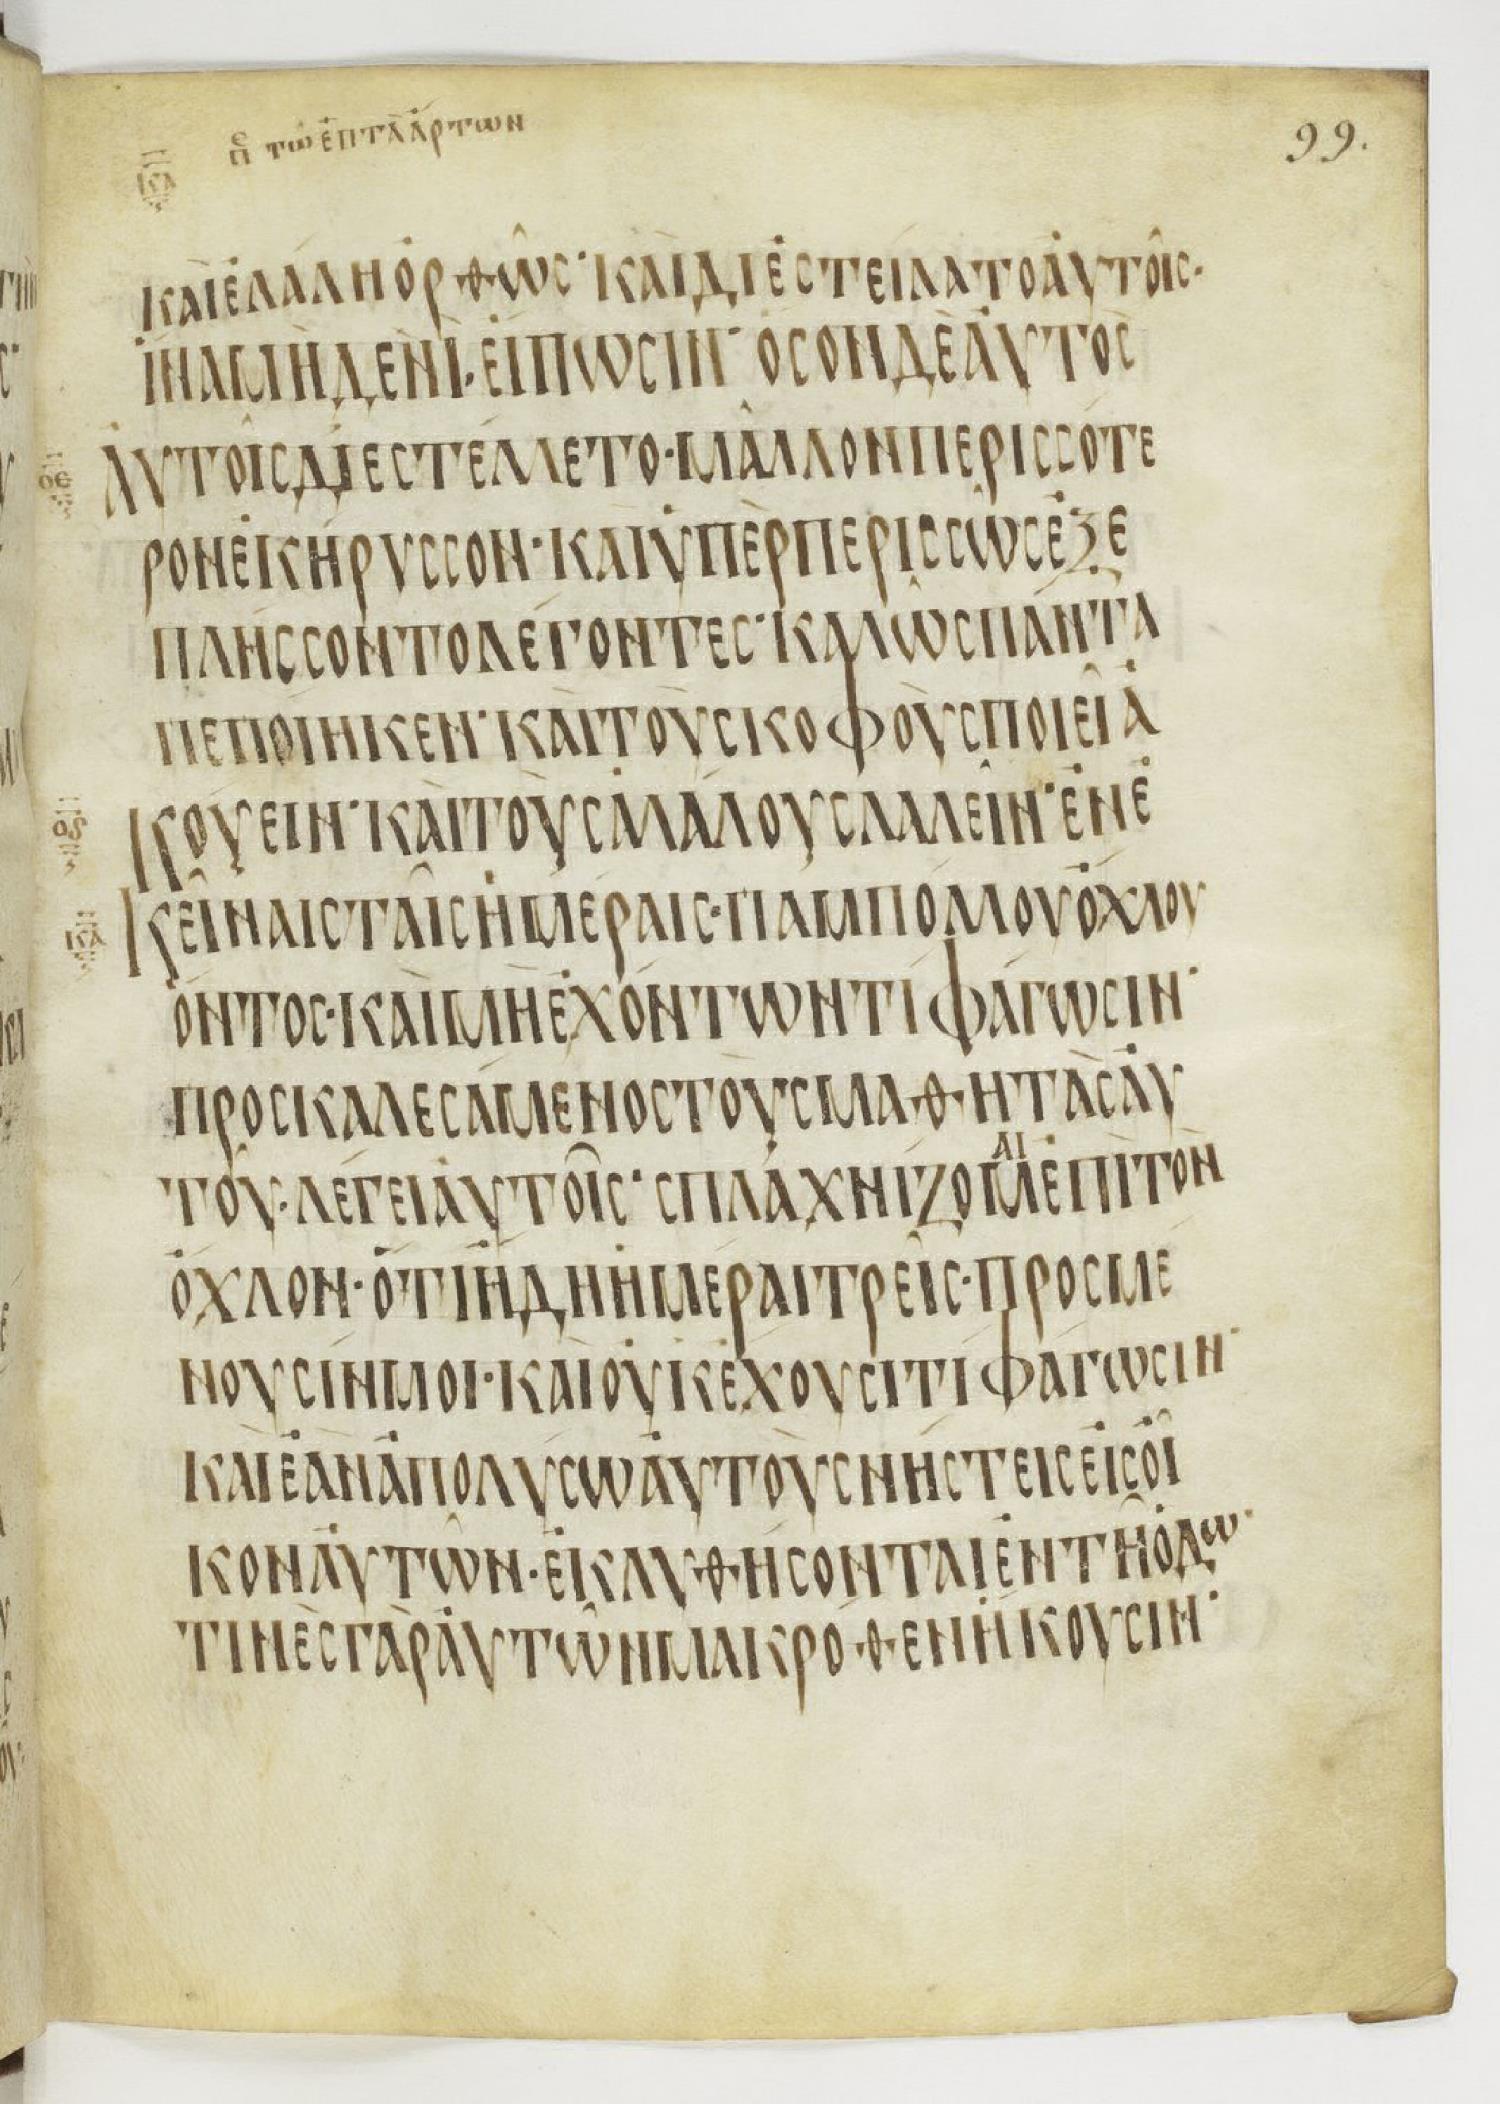 π τῶ ἑπτὰ ἄρτων
99.
ΚΑΙΕΛΑΛΗΟΡΦΩΣ· ΚΑΙΔΙΕΣΤΕΙΛΑΤΟΑΥΤΟΙΣ·
ΙΝΑΜΗΔΕΝΙ·ΕΙΠΩΣΙΝ· ΟΣΟΝΔΕΑΥΤΟΣ
ΑΥΤΟΙΣΔΙΕΣΤΕΛΛΕΤΟ·ΜΑΛΛΟΝΠΕΡΙΣΣΟΤΕ
ΡΟΝΕΚΗΡΥΣΣΟΝ· ΚΑΙΥΠΕΡΠΕΡΙΣΣΩΣΕΞΕ
ΠΛΗΣΣΟΝΤΟΛΕΓΟΝΤΕΣ· ΚΑΛΩΣΠΑΝΤΑ
ΠΕΠΟΙΗΚΕΝ· ΚΑΙΤΟΥΣΚΟΦΟΥΣΠΟΙΕΙΑ
ΚΟΥΕΙΝ· ΚΑΙΤΟΥΣΑΛΑΛΟΥΣΛΑΛΕΙΝ· ΕΝΕ
ΚΕΙΝΑΙΣΤΑΙΣΗΜΕΡΑΙΣ·ΠΑΜΠΟΛΛΟΥΟΧΛΟΥ
ΟΝΤΟΣ·ΚΑΙΜΗΕΧΟΝΤΩΝΤΙΦΑΓΩΣΙΝ·
ΠΡΟΣΚΑΛΕΣΑΜΕΝΟΣΤΟΥΣΜΑΘΗΤΑΣΑΥ
ΤΟΥ·ΛΕΓΕΙΑΥΤΟΙΣ· ΣΠΛΑΧΝΙΖΟΜΑΙΕΠΙΤΟΝ
ΟΧΛΟΝ·ΟΤΙΗΔΗΗΜΕΡΑΙΤΡΕΙΣ·ΠΡΟΣΜΕ
ΝΟΥΣΙΝΜΟΙ·ΚΑΙΟΥΚΕΧΟΥΣΙΤΙΦΑΓΩΣΙΝ·
ΚΑΙΕΑΝΑΠΟΛΥΣΩΑΥΤΟΥΣΝΗΣΤΕΙΣΕΙΣΟΙ
ΚΟΝΑΥΤΩΝ·ΕΚΛΥΘΗΣΟΝΤΑΙΕΝΤΗΟΔΩ·
ΤΙΝΕΣΓΑΡΑΥΤΩΝΜΑΚΡΟΘΕΝΗΚΟΥΣΙΝ·